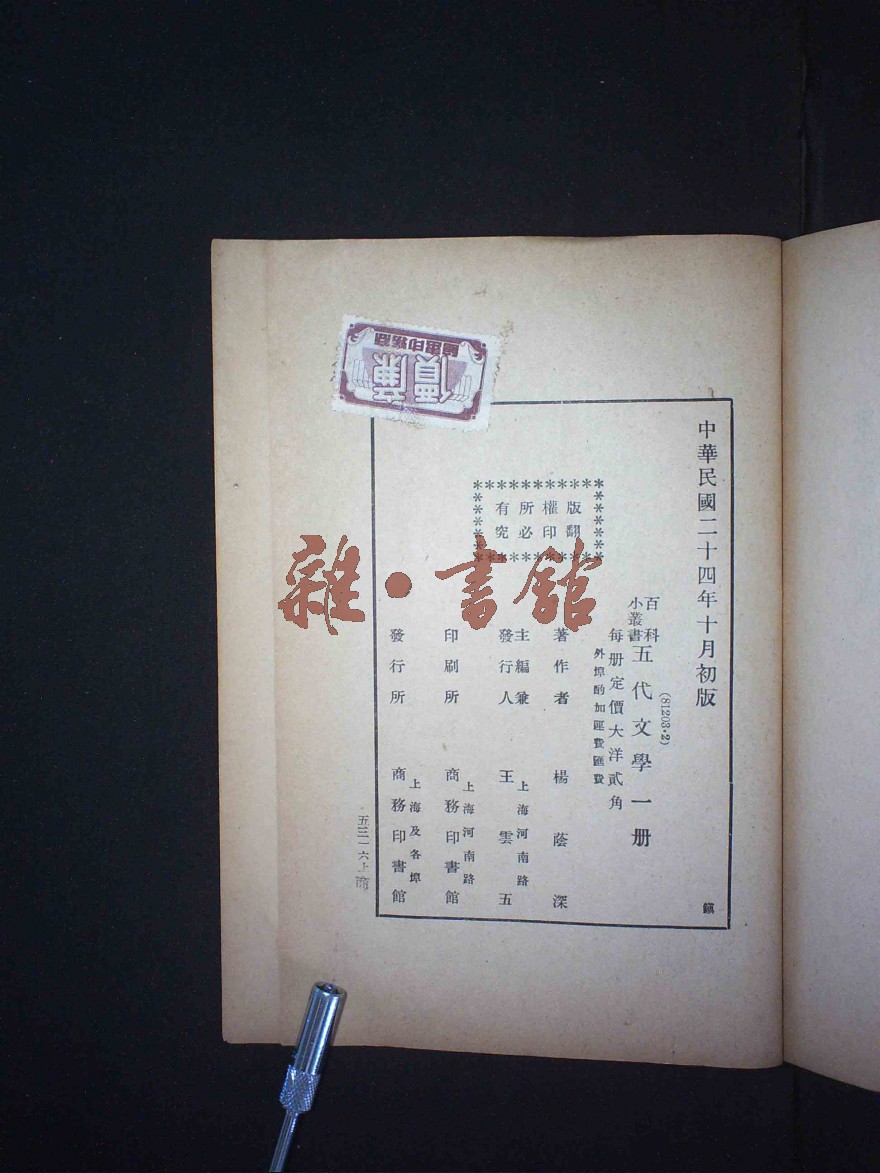 中華民國二十四年十月初版
(81203·2)
百科
小叢書
五代文學一册
每册定價大洋貳角
外埠酌加運費匯費
版權所有
翻印必究
著作者 楊蔭深
主編兼
發行人
上海河南路
王雲五
印刷所
上海河南路
商務印書館
發行所
上海及各埠
商務印書館
五三一六上
商務印書館
廉價
雜·書館